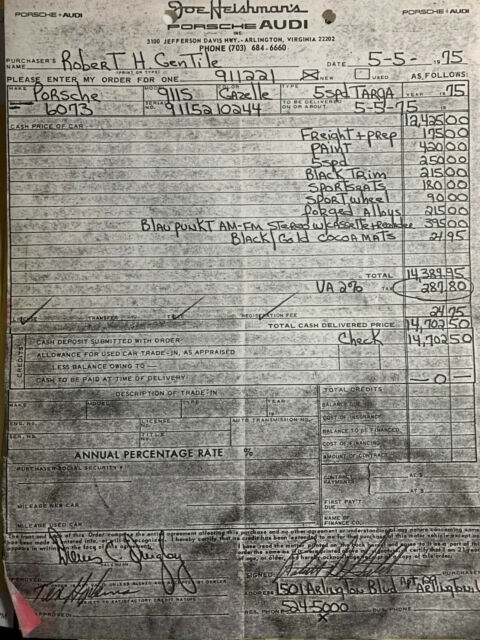 PORSCHE + AUDI
Joe Heishman's
PORSCHE AUDI
INC
PORSCHE + AUDI
3100 JEFFERSON DAVIS HWY. - ARLINGTON, VIRGINIA 22202
PHONE (703) 684-6660
PURCHASER'S NAME Robert H Gentile DATE 5-5- 1975
(PRINT OR TYPE)
PLEASE ENTER MY ORDER FOR ONE 911221 NEW USED AS FOLLOWS:
MAKE Porsche 911S COLOR Gazelle TYPE 5spd TARGA YEAR 1975
6073 SERIAL NO. 9115210244 TO BE DELIVERED ON OR ABOUT 5-5-75 19
CASH PRICE OF CAR 12,425 00
Freight + prep 175 00
PAINT 420 00
5spd 250 00
Black Trim 215 00
SPORTSEATS 180 00
SPORT wheel 90 00
Forged Alloys 215 00
BLAUPUNKT AM-FM Stereo w/cassette + 395 00
Black/Gold COCOAMATS 24 95
TOTAL 14,389.95
VA 2% TAX 287.80
LICENSE TRANSFER TITLE REGISTRATION FEE 24.75
TOTAL CASH DELIVERED PRICE 14,702 50
CREDITS
CASH DEPOSIT SUBMITTED WITH ORDER Check 14,702 50
ALLOWANCE FOR USED CAR TRADE-IN, AS APPRAISED
LESS BALANCE OWING TO
CASH TO BE PAID AT TIME OF DELIVERY — 0 —
DESCRIPTION OF TRADE-IN TOTAL CREDITS
MAKE MODEL TYPE YEAR 19 BALANCE DUE
ENG. NO. LICENSE NO. AUTO TRANSMISSION NO. COST OF INSURANCE
SER. NO. TITLE NO. BALANCE TO BE FINANCED
COST OF FINANCING
ANNUAL PERCENTAGE RATE % AMOUNT OF CONTRACT
PURCHASER SOCIAL SECURITY # CONTRACT PAYMENTS AT $
AT $
MILEAGE NEW CAR FIRST PAY'T DUE
MILEAGE USED CAR NAME OF FINANCE CO.
The front and back of this Order comprise the entire agreement affecting this purchase and no other agreement or understanding of any nature concerning same
SALESMAN
APPROVED SIGNED PURCHASER
ADDRESS 1501 Arlington Blvd Apt Arlington
RES. PHONE 524-5000 BUS. PHONE
X